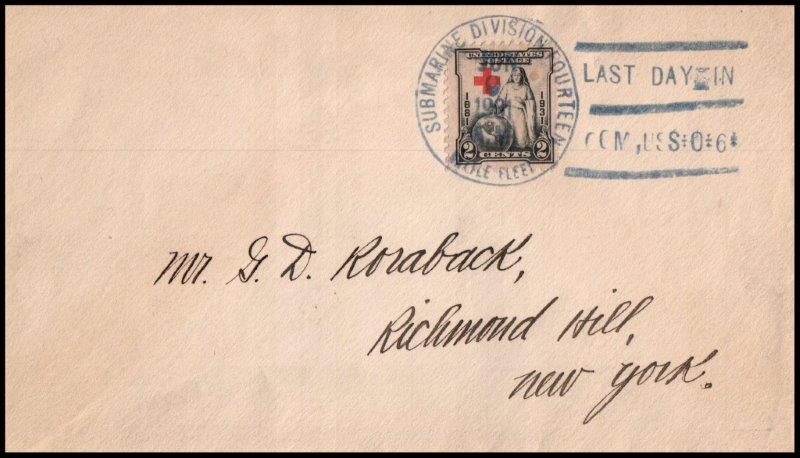 SUBMARINE DIVISION FOURTEEN
UNITED STATES
POSTAGE
1881 1931
2 CENTS 2
FLEET
LAST DAY IN
COM, USS O 6
Mr. G. D. Roraback,
Richmond Hill,
New York.